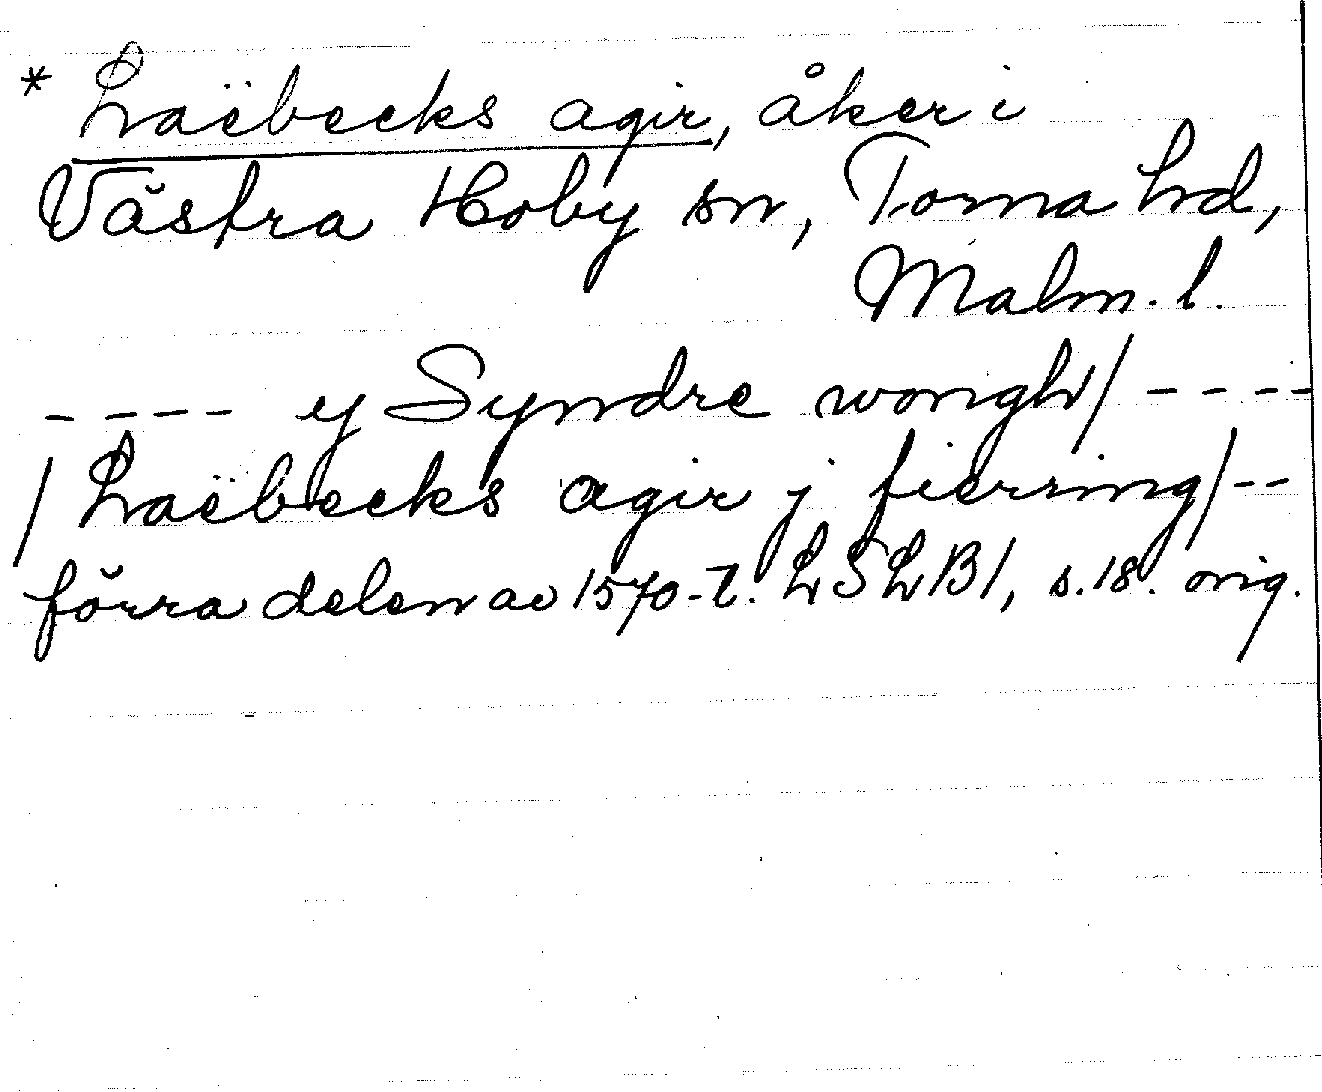 * Laëbecks agir, åker i
Västra Hoby sn, Torna hd,
Malm. l.
---- y Syndre wongh/ ----
/Laëbecks agir j fierring/--
förra delen av 1570-t. LSLB1, s. 18. orig.